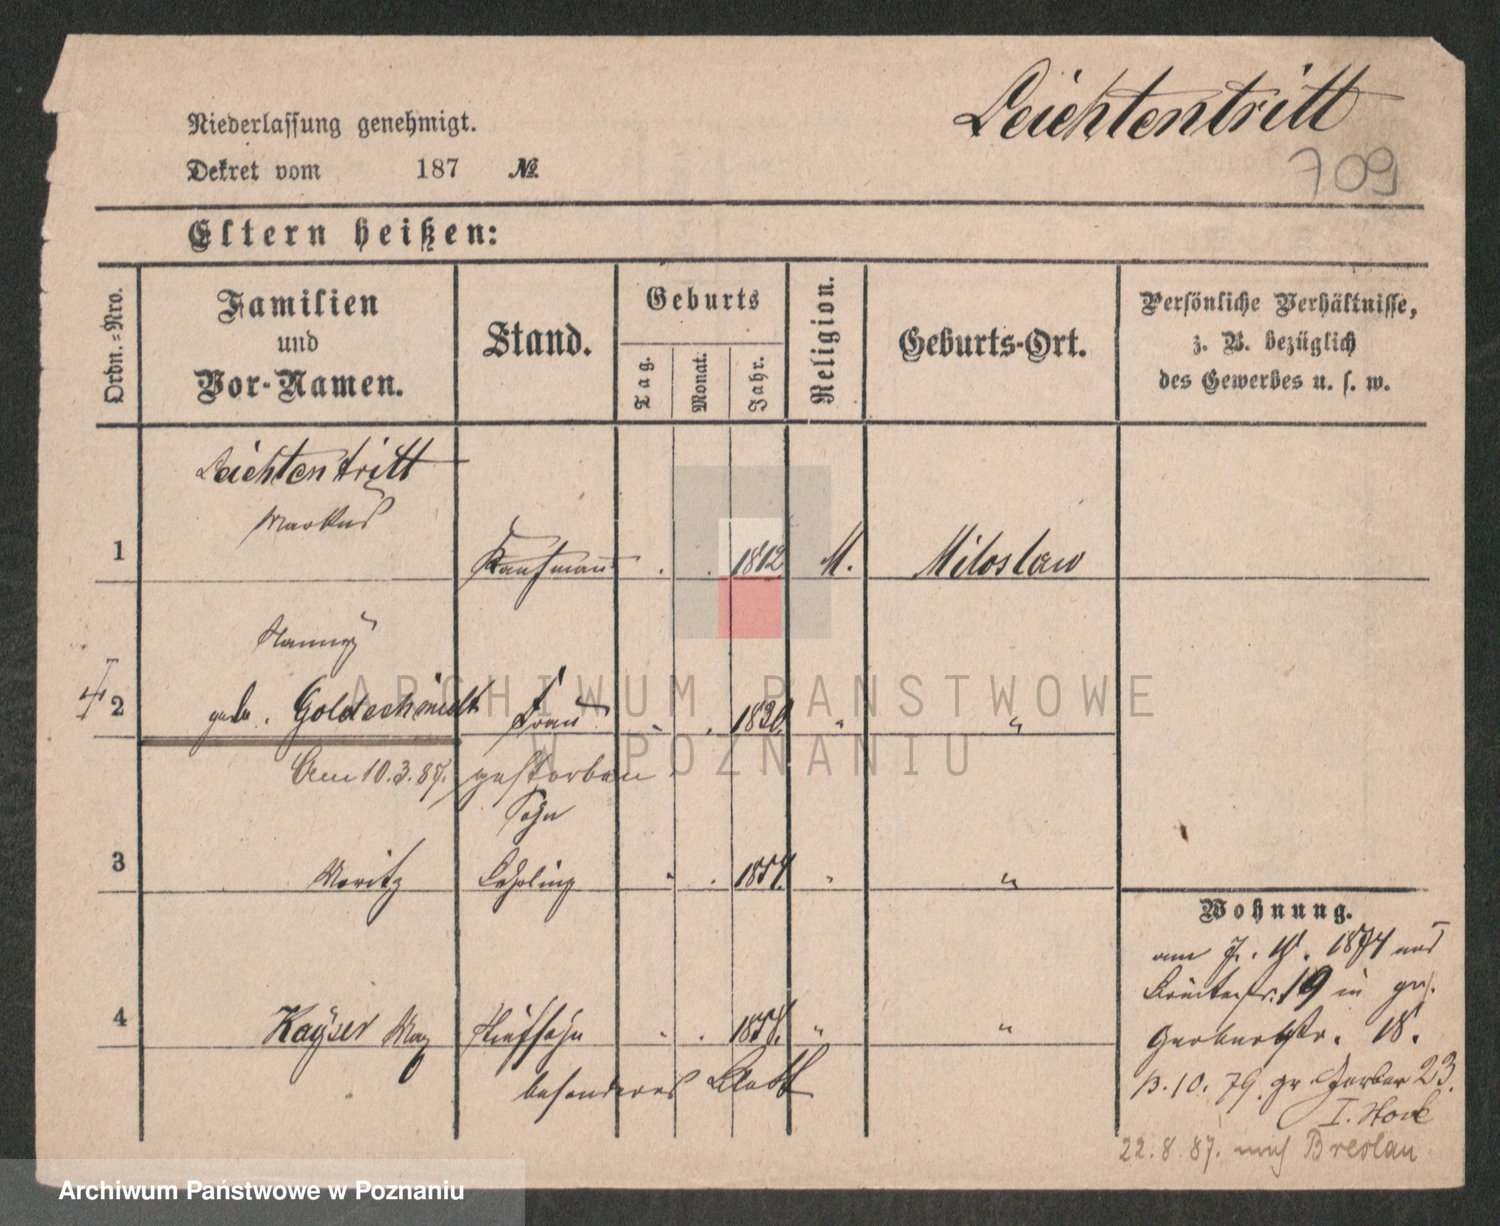 Leichtentritt
709
Niederlassung genehmigt.
Dekret vom 187 №
Eltern heißen:
Ordn.=Nro.
Familien
und
Vor-Namen.
Stand.
Geburts
Tag.
Monat.
Jahr.
Religion.
Geburts-Ort.
Persönliche Verhältnisse,
z. B. bezüglich
des Gewerbes u. s. w.
Leichtentritt
Markus
1 Kaufmann . . 1812 M. Miloslaw
Hanny
2 geb. Goldschmidt Frau . . 1820. " "
Am 10.3.87. gestorben
Sohn
3 Moritz Lehrling " . 1857. " "
4 Kayser Max Stiefsohn " . 1858. " "
besonderes Blatt
Wohnung.
am 7. 1874 aus
Breitestr. 19 in gr.
Gerberstr. 18.
13.10.79. gr. Gerber 23.
I. Stock
22.8.87. nach Breslau
ARCHIWUM PAŃSTWOWE
W POZNANIU
Archiwum Państwowe w Poznaniu